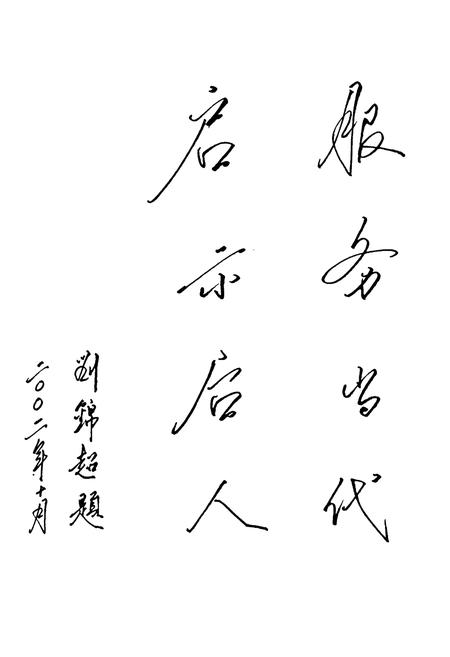 服务当代
启示后人
劉錦超題
二〇〇二年十月